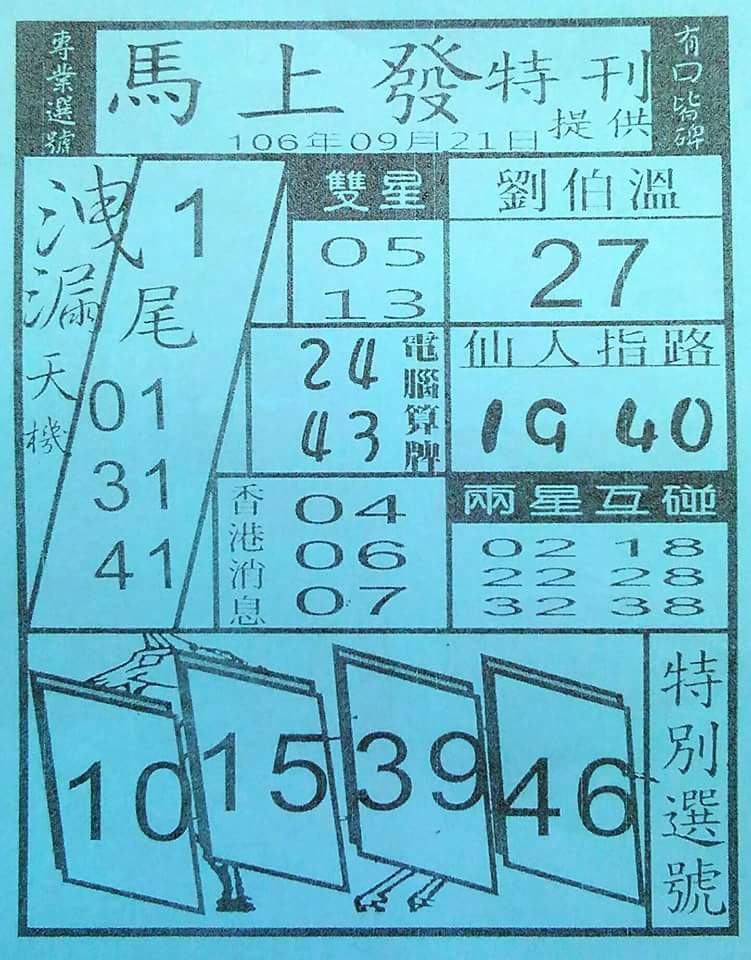 專業選號
馬上發特刊
提供
106年09月21日
有口皆碑
洩漏天機
1
尾
01
31
41
雙星
05
13
劉伯溫
27
24
43
電腦算牌
仙人指路
19 40
香港消息
04
06
07
兩星互碰
02 18
22 28
32 38
10 15 39 46
特別選號